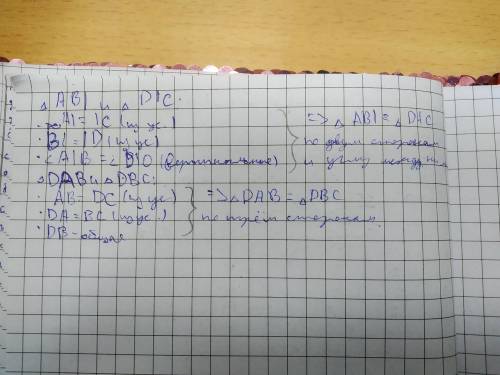 △ ABI и △ DIC:
· AI = IC (из ус.)
· BI = ID (из ус)
· ∠AIB = ∠BIO (вертикальные)
=> △ ABI = △ DIC
по двум сторонам
и углу между ним
△DAB и △DBC:
· AB = DC (из ус)
· DA = BC (из ус.)
· DB - общая
=> △DAB = △DBC
по трём сторонам.